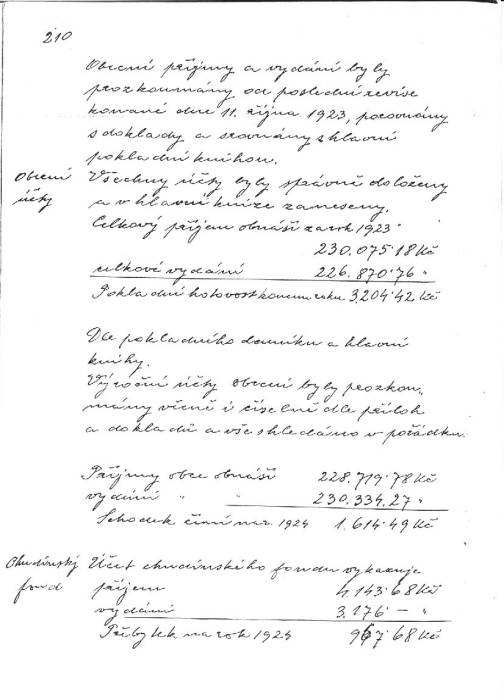 210
Obecní příjmy a vydání byly
prozkoumány od poslední revise
konané dne 11. října 1923, porovnány
s doklady a srovnány s hlavní
pokladní knihou.
Obecní účty
Všechny účty byly správně doloženy
a v hlavní knize zaneseny.
Celkový příjem obnáší za rok 1923
230.075·18 Kč
celkové vydání 226.870·76 "
Pokladní hotovost koncem roku 3.204·42 Kč
Dle pokladního denníku a hlavní
knihy.
Výroční účty obecní byly prozkou„
mány věcně i číselně dle příloh
a dokladů a vše shledáno v pořádku.
Příjmy obce obnáší 228.719·78 Kč
vydání " " 230.334.27 "
Schodek činí na r. 1924 1.614·49 Kč
Chudinský fond
Účet chudinského fondu vykazuje
příjem 4.143·68 Kč
vydání 3.176 — "
Přibytek na rok 1924 967·68 Kč